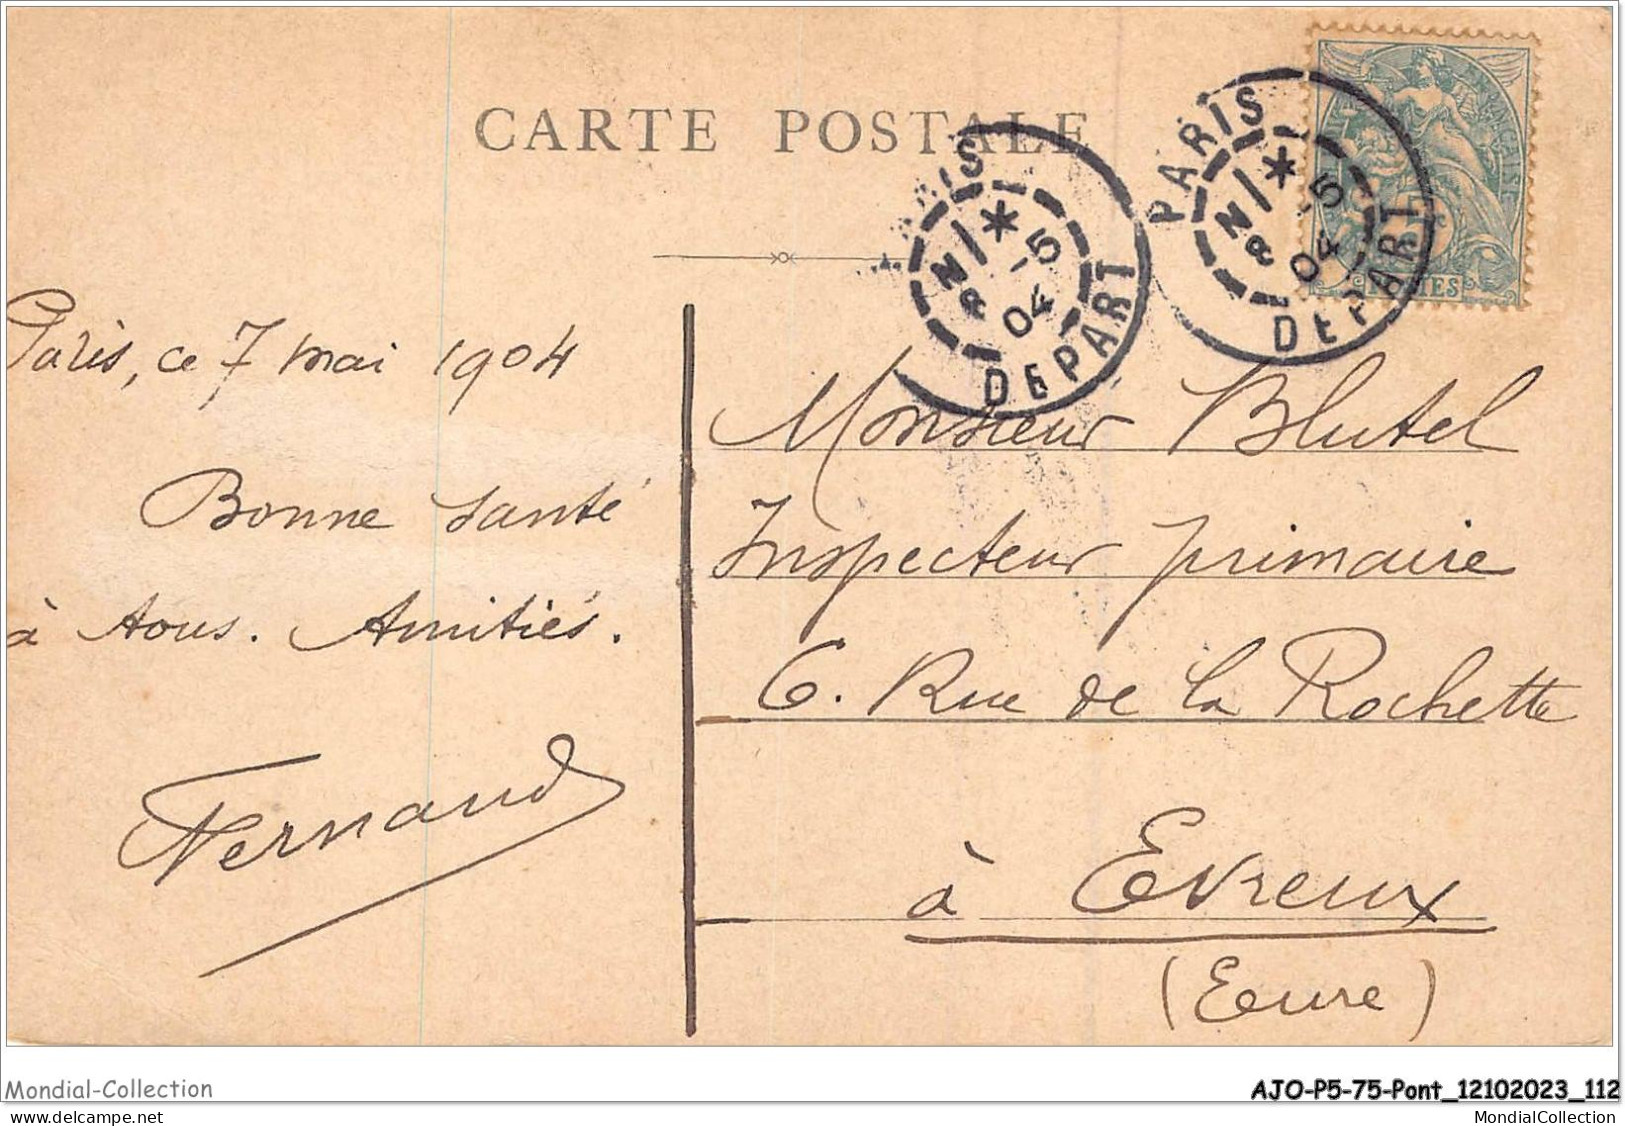 CARTE POSTALE
PARIS
N/*
8 -5
04
DEPART
PARIS
N/*
8 -5
04
DEPART
Paris, ce 7 mai 1904
Bonne santé
à tous. Amitiés.
Fernand
Monsieur Blutel
Inspecteur primaire
6. Rue de la Rochette
à Evreux
(Eure)
Mondial-Collection
AJO-P5-75-Pont_12102023_112
delcampe.net
MondialCollection